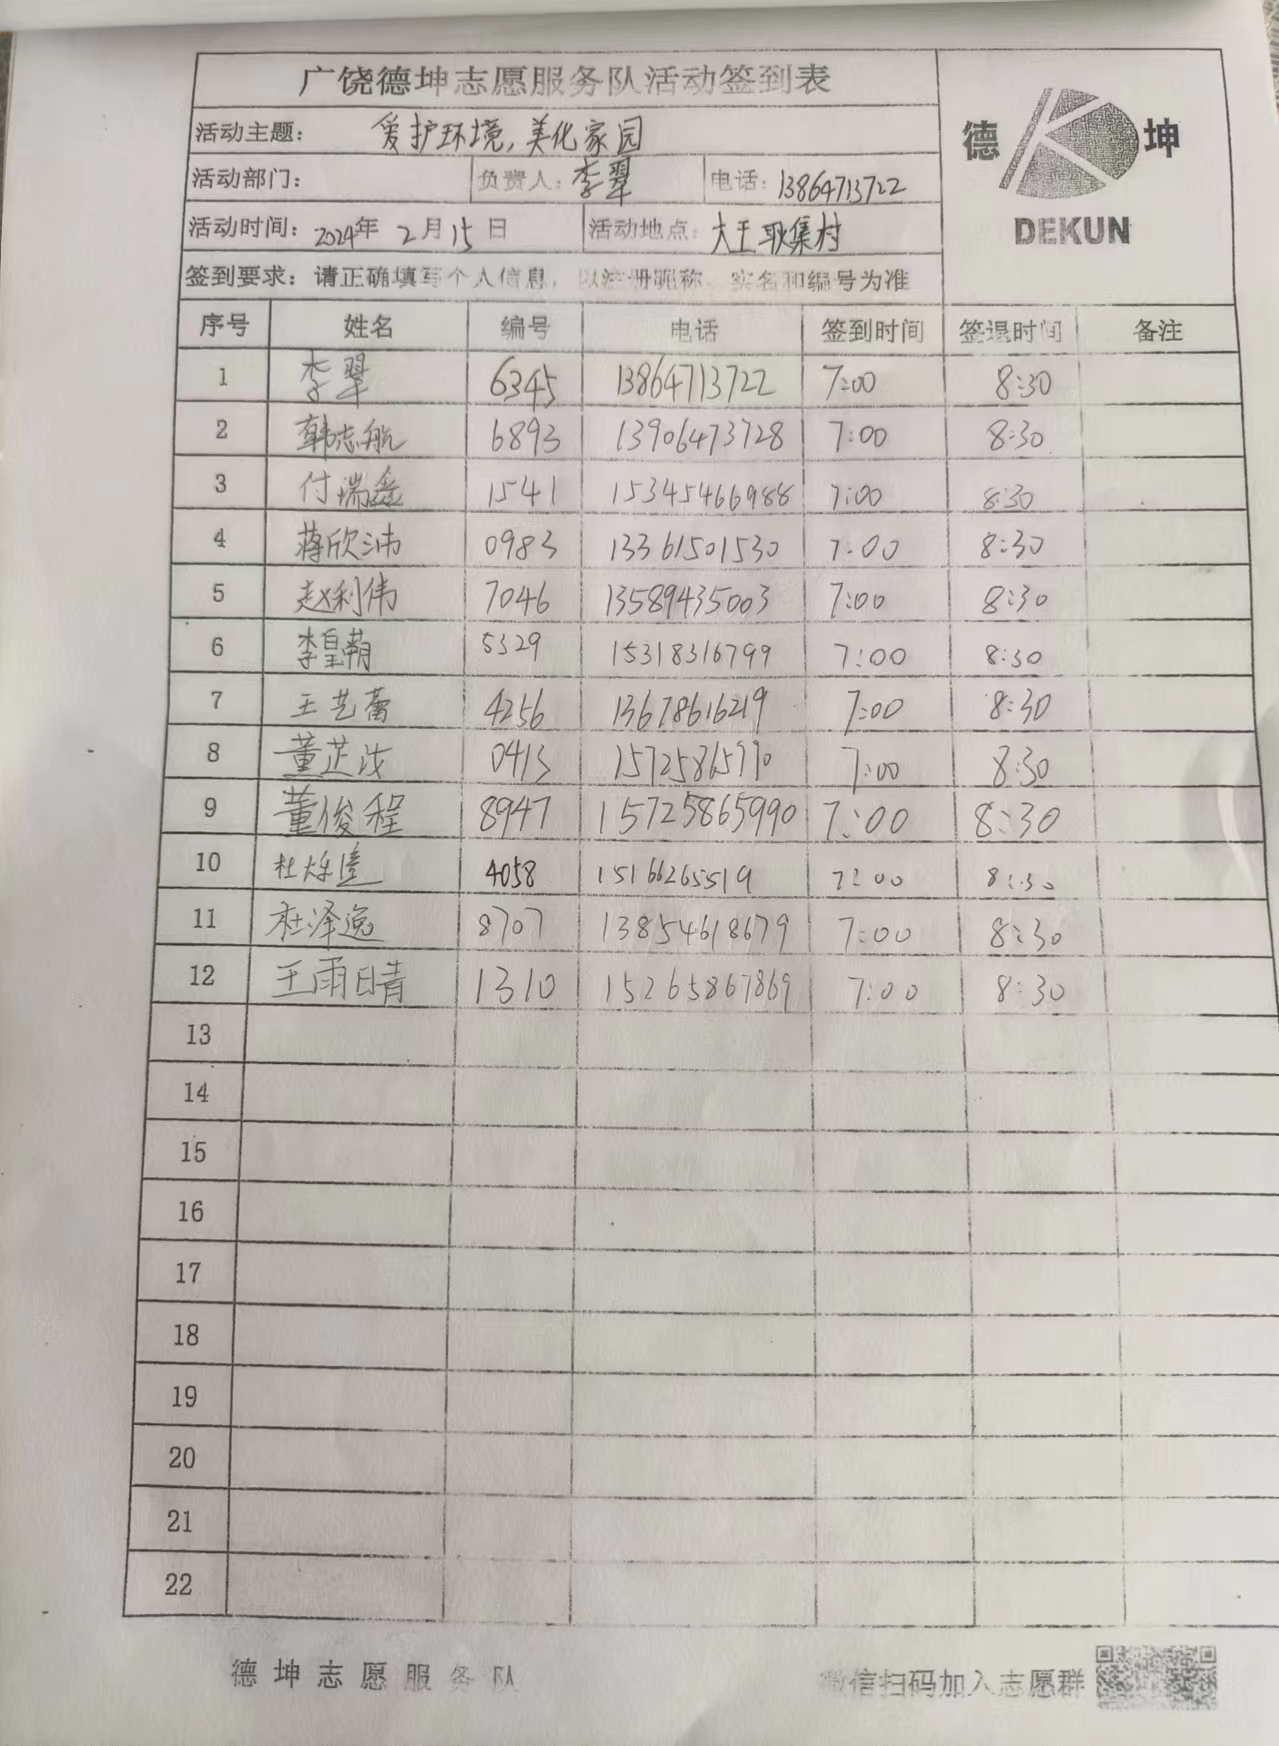 广饶德坤志愿服务队活动签到表
德 坤
DEKUN
活动主题: 爱护环境,美化家园
活动部门: 负责人: 李翠 电话: 13864713722
活动时间: 2024年 2月15日 活动地点: 大王耿集村
签到要求: 请正确填写个人信息, 以注册昵称、实名和编号为准
序号 姓名 编号 电话 签到时间 签退时间 备注
1 李翠 6345 13864713722 7:00 8:30
2 韩志航 6893 13906473728 7:00 8:30
3 付瑞鑫 1541 15345466988 7:00 8:30
4 蒋欣沛 0983 13361501530 7:00 8:30
5 赵利伟 7046 13589435003 7:00 8:30
6 李皇萌 5329 15318316799 7:00 8:30
7 王艺蕾 4256 13678616219 7:00 8:30
8 董芷汝 0413 7:00 8:30
9 董俊程 8947 15725865990 7:00 8:30
10 杜 4058 15166265519 7:00 8:30
11 杜泽逸 8707 13854618679 7:00 8:30
12 王雨晴 1310 15265867869 7:00 8:30
13
14
15
16
17
18
19
20
21
22
德坤志愿服务队 微信扫码加入志愿群